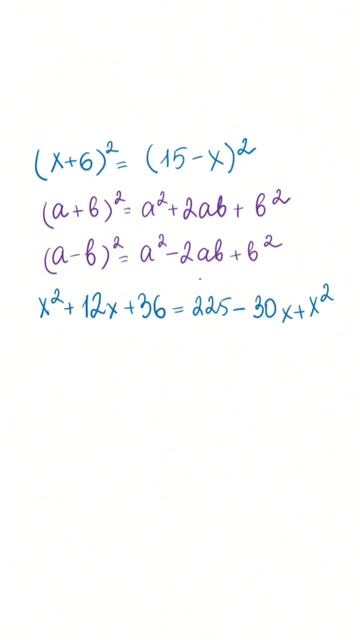 (x+6)² = (15-x)²
(a+b)² = a²+2ab+b²
(a-b)² = a²-2ab+b²
x²+12x+36 = 225-30x+x²